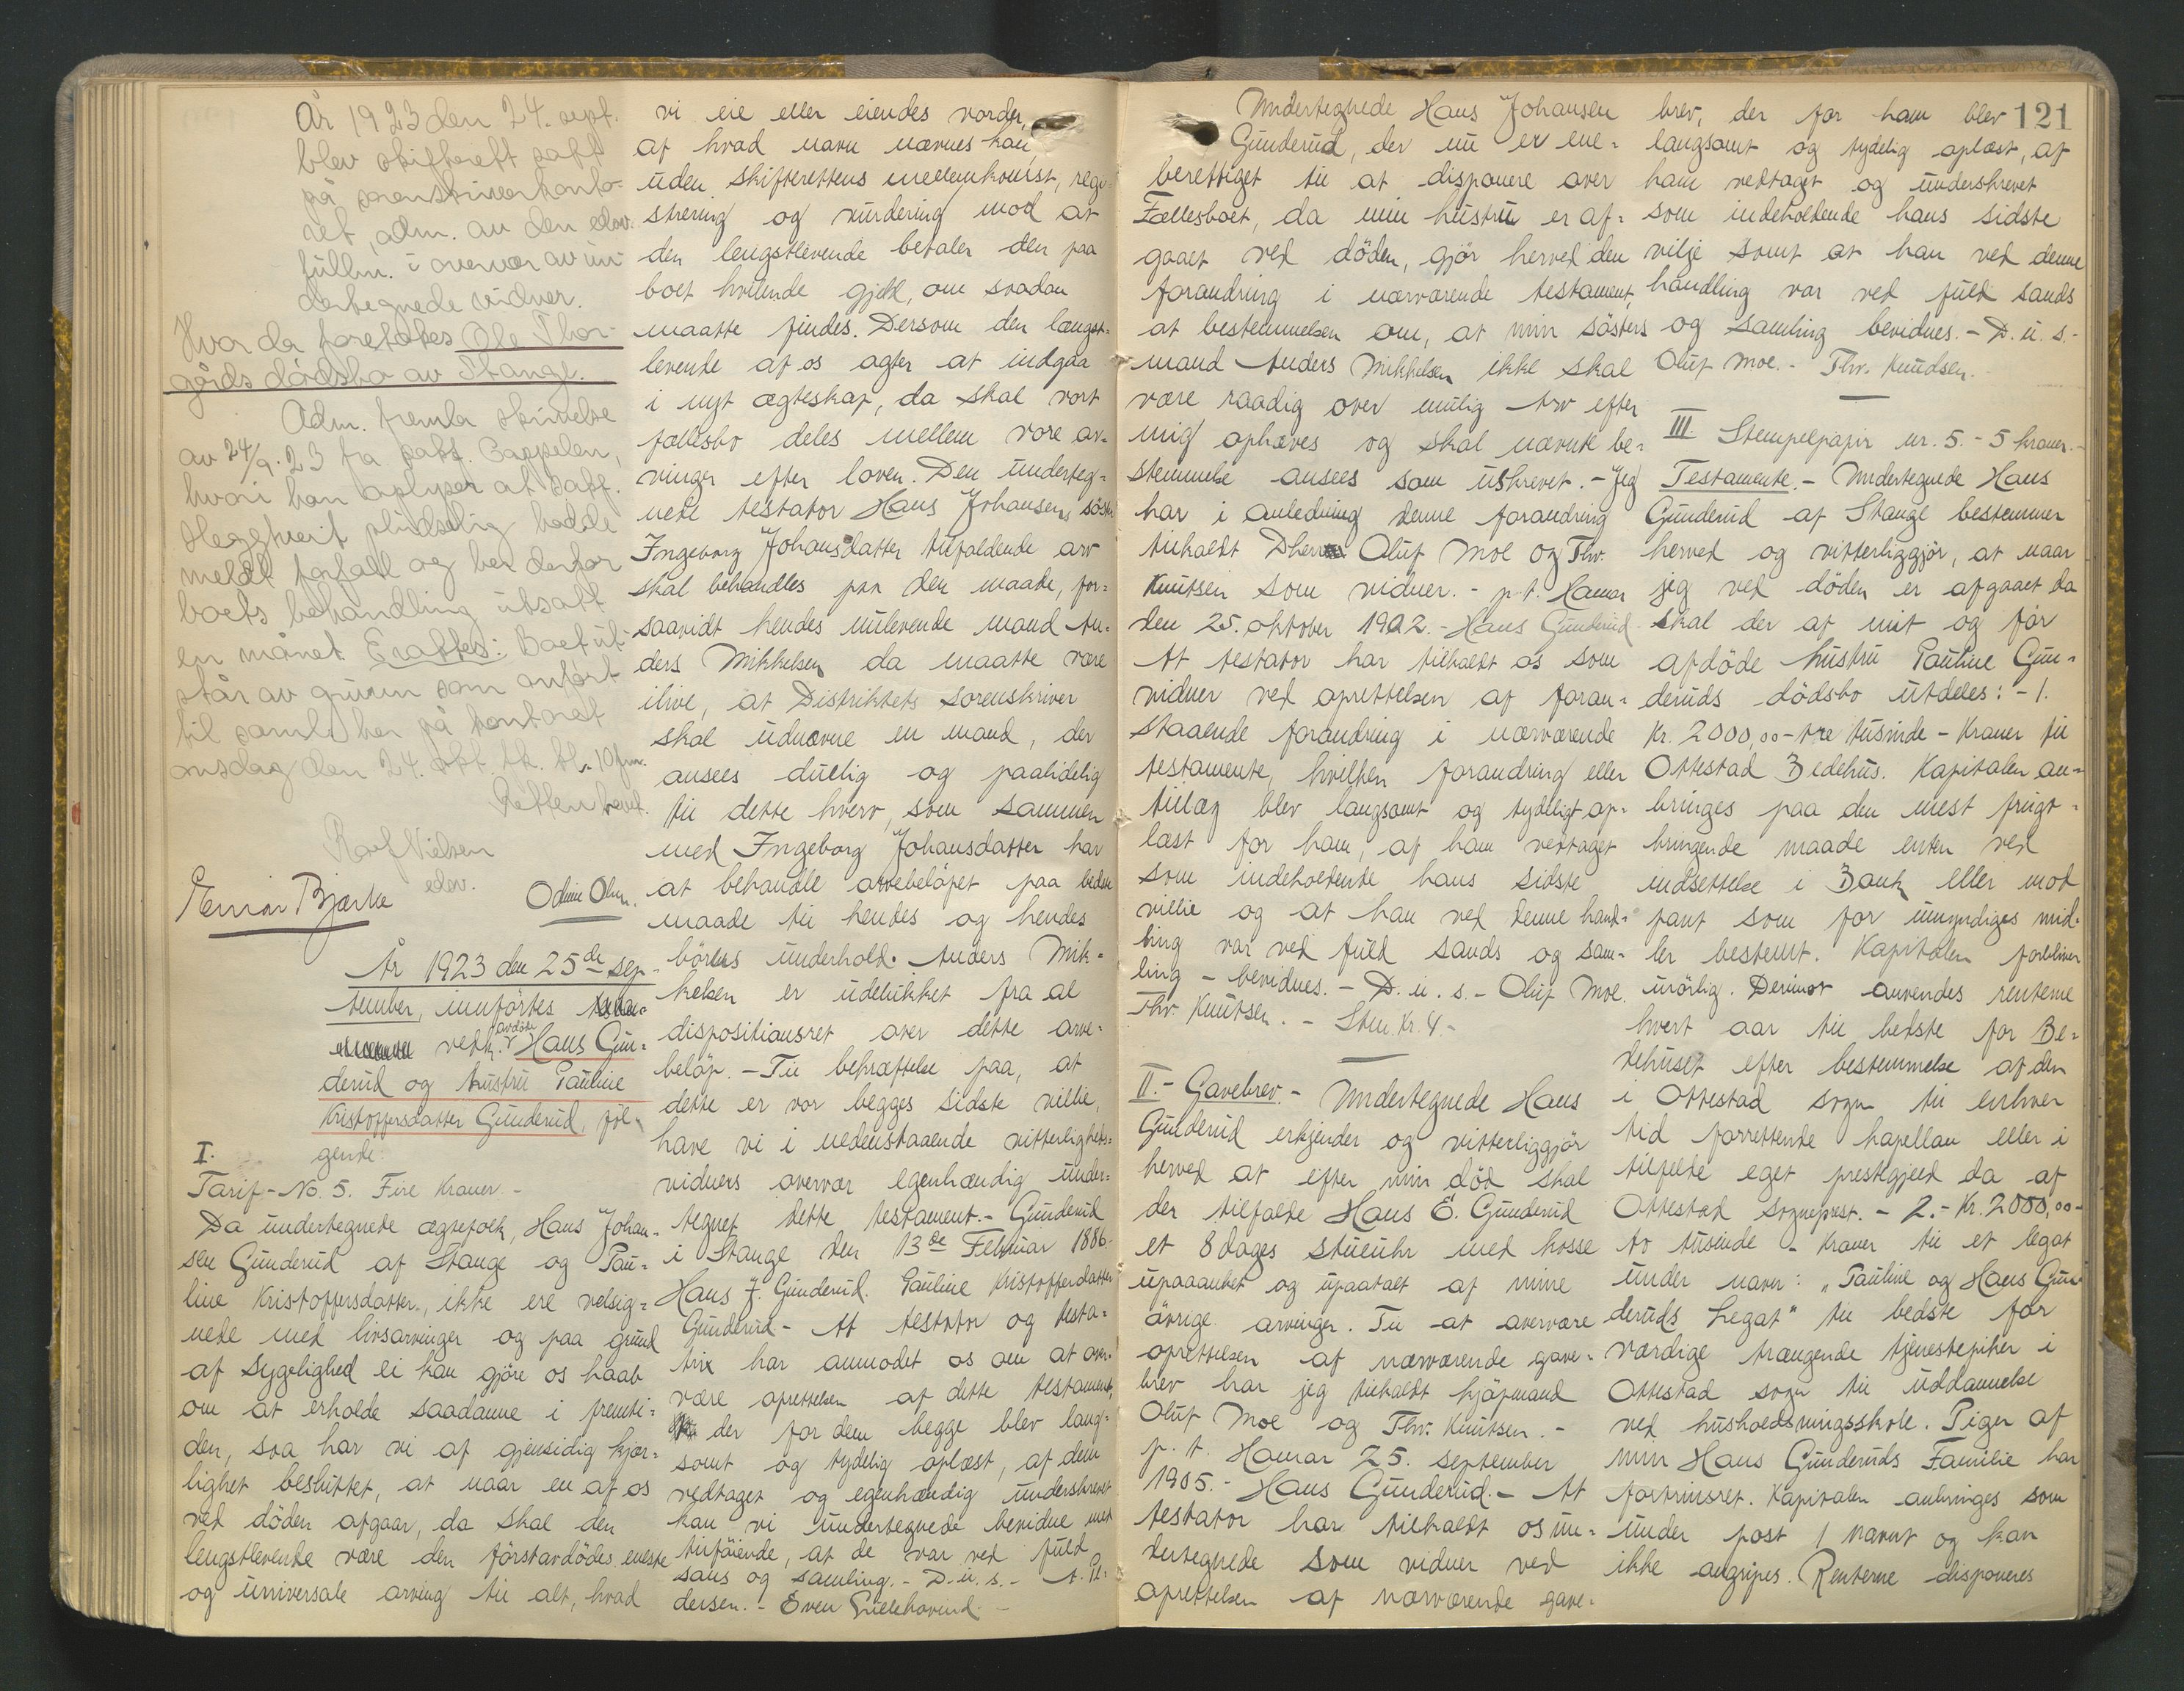 År 1923 den 24. sept.
blev skifterett satt
på sorenskriverkonto-
ret, adm. av den edsv.
fullm. i overvær av un-
dertegnede vidner.
Hvor da foretokes Ole Thor-
gårds dødsbo av Stange.
Adm. fremla skrivelse
av 24/9. 23 fra saksf. Cappelen,
hvori han oplyser at saksf.
Heggtveit plutselig hadde
meldt forfall og ber derfor
boets behandling utsatt
en månet. Erattes: Boet ut-
står av grunn som anført
til saml. her på kontoret
onsdag den 24. okt. kl. 10 fm.
Retten hevet.
Rolf Nielsen
edsv.
Einar Bjerke Odin Olsen.
År 1923 den 25de sep-
tember, innførtes
vedk. avdöde Hans Gun-
derud og hustru Pauline
Kristoffersdatter Gunderud, föl-
gende:
I.
Tarif.- No. 5. Fire Kroner.-
Da undertegnede ægtefolk, Hans Johan-
sen Gunderud af Stange og Pau-
line Kristoffersdatter, ikke ere velsig-
nede med livsarvinger og paa grund
af Sygelighed ei kan gjöre os haab
om at erholde saadanne i fremti-
den, saa har vi af gjensidig kjær-
lighet besluttet, at naar en af os
ved döden afgaar, da skal den
lengstlevende være den förstavdödes eneste
og universale arving til alt, hvad
vi eie eller eiendes vorder,
af hvad navn nævnes kan,
uden Skifterettens medemkomst, regi-
strering og vurdering mod at
den lengstlevende betaler den paa
boet hvilende gjeld, om saadan
maatte findes. Dersom den længst-
levende af os agter at indgaa
i nyt ægteskap, da skal vort
fællesbo deles mellem vore ar-
vinger efter loven. Den underteg-
nede testator Hans Johansens söster
Ingeborg Johansdatter tilfaldende arv
skal behandles paa den maade, for-
saavidt hendes nulevende mand An-
ders Mikkelsen da maatte være
ilive, at Distriktets Sorenskriver
skal udnævne en mand, der
ansees duelig og paalidelig
til dette hverv, som sammen
med Ingeborg Johansdatter har
at behandle arvebelöpet paa bedste
maade til hendes og hendes
börns underhold. Anders Mik-
kelsen er udelukket fra al
dispositionsret over dette arve-
belöp. - Til bekræftelse paa, at
dette er vor begges sidste villie,
have vi i nedenstaaende vitterligheds-
vidners overvær egenhændig under-
tegnet dette testament.- Gunderud
i Stange den 13de Februar 1886.
Hans J. Gunderud. Pauline Kristoffersdatter
Gunderud - At testator og testa-
trix har anmodet os om at over-
være oprettelsen af dette testament,
der for dem begge blev lang-
somt og tydelig oplæst, af dem
vedtaget og egenhændig underskrevet
kan vi undertegnede bevidne med
tilföiende, at de var ved fuld
sans og samling. - D. u. s. - A. Pe-
dersen. - Even Gillehovind -
121
Undertegnede Hans Johansen
Gunderud, der nu er ene-
berettiget til at disponere over
Fællesboet, da min hustru er af-
gaaet ved döden, gjör herved den
forandring i nærværende testament,
at bestemmelsen om, at min sösters
mand Anders Mikkelsen ikke skal
være raadig over mulig arv efter
mig ophæves og skal nævnte be-
stemmelse ansees som uskrevet. - Jeg
har i anledning denne forandring
tilkaldt Dherrer Oluf Moe og Thv.
Knutsen som vidner. - p. t. Hamar
den 25. oktober 1902. - Hans Gunderud
At testator har tilkaldt os som
vidner ved oprettelsen af foran-
staaende forandring i nærværende
testamente, hvilken forandring eller
tillæg blev langsomt og tydeligt op-
læst for ham, af ham vedtaget
som indeholdende hans sidste
villie og at han ved denne hand-
ling var ved fuld sands og sam-
ling - bevidnes. - D. u. s. - Oluf Moe.
Thv. Knutsen. - Stm. Kr. 4 -
II. - Gavebrev. - Undertegnede Hans
Gunderud erkjender og vitterliggjör
herved at efter min död skal
der tilfalde Hans E. Gunderud
et 8 dages stueuhr med kasse
upaaanket og upaatalt af mine
övrige arvinger. Til at overvære
oprettelsen af nærværende gave-
brev har jeg tilkaldt kjöpmand
Oluf Moe og Thv. Knutsen. -
p. t. Hamar 25. september
1905. - Hans Gunderud. - At
testator har tilkaldt os un-
dertegnede som vidner ved
oprettelsen af nærværende gave-
brev, der for ham blev
langsomt og tydelig oplæst, af
ham vedtaget og underskrevet
som indeholdende hans sidste
vilje samt at han ved denne
handling var ved fuld sands
og samling bevidnes. - D. u. s. -
Oluf Moe. - Thv. Knudsen.
III. Stempelpapir nr. 5. - 5 kroner.-
Testamente. - Undertegnede Hans
Gunderud af Stange bestemmer
herved og vitterliggjör, at naar
jeg ved döden er afgaaet da
skal der af mit og før
afdöde hustru Pauline Gun-
deruds dödsbo utdeles: - 1.
Kr. 2000,00 - tusinde - Kroner til
Ottestad Bedehus. Kapitalen an-
bringes paa den mest frugt-
bringende maade enten ved
indsettelse i Bank eller mod
pant som for umyndiges mid-
ler bestemt. Kapitalen forbliver
urörlig. Derimot anvendes renterne
hvert aar til bedste for Be-
dehuset efter bestemmelse af den
i Ottestad sogn til enhver
tid forrettende kapellan eller i
tilfelde eget prestegjeld da af
Ottestad Sogneprest. - 2. - Kr. 2000,00 -
to tusinde - kroner til et legat
under navn: "Pauline og Hans Gun-
deruds Legat" til bedste for
værdige trængende tjenestepiker i
Ottestad sogn til uddannelse
ved husholdningsskole. Piger af
min Hans Gunderuds Familie har
fortrinsret. Kapitalen anbringes som
under post 1 nævnt og kan
ikke angripes. Renterne disponeres